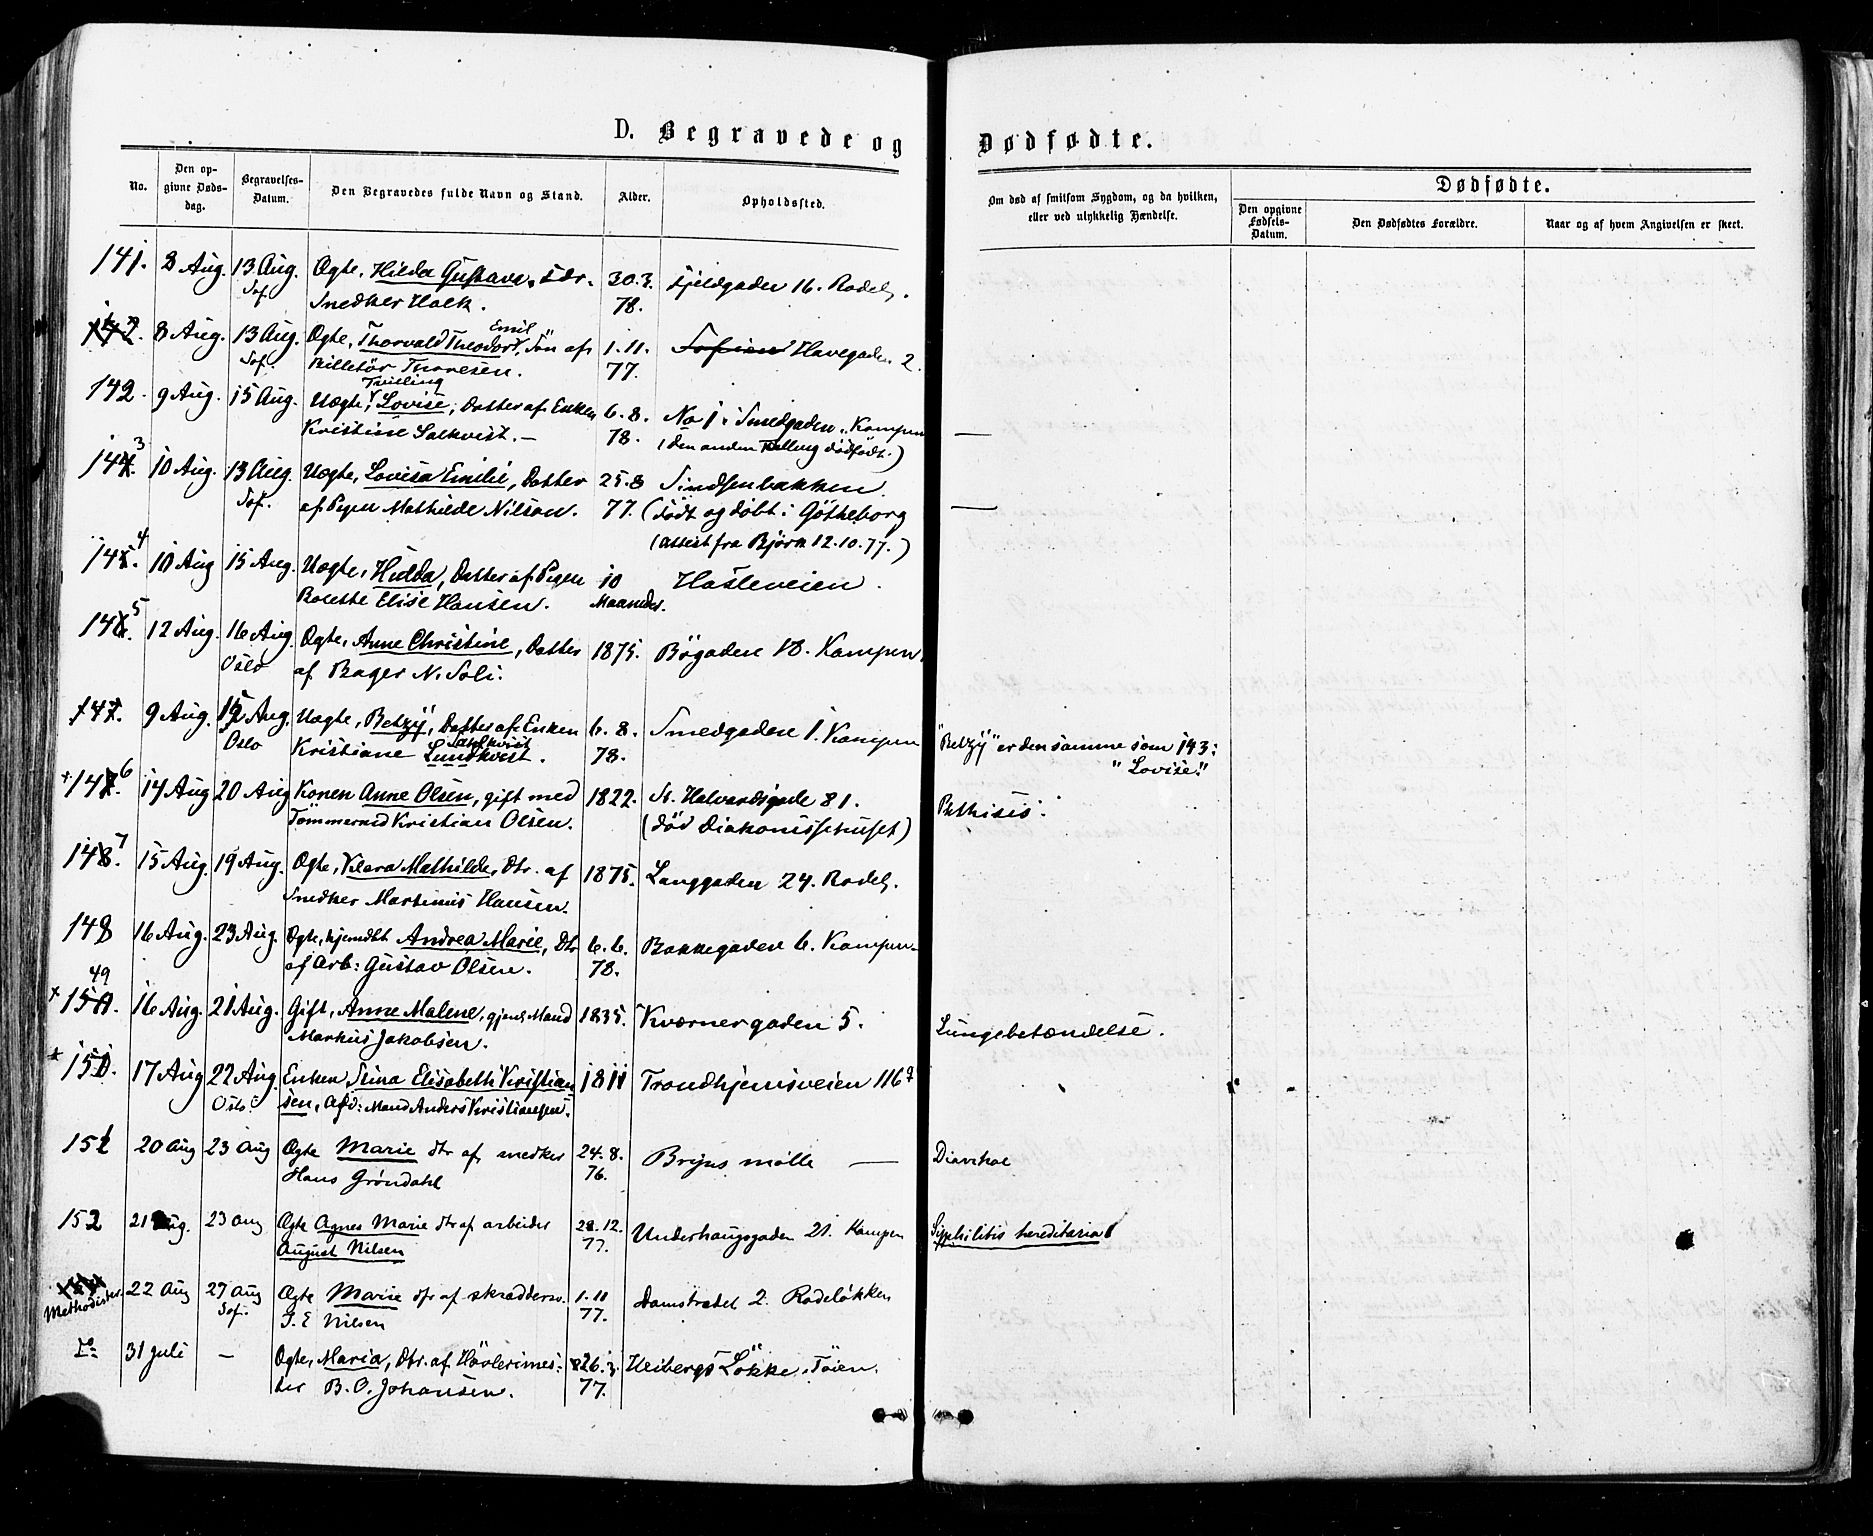 D. Begravede og Dødfødte.
No.
Den op-
givne Døds-
dag.
Begravelses-
Datum.
Den Begravedes fulde Navn og Stand.
Alder.
Opholdssted.
Om død af smitsom Sygdom, og da hvilken,
eller ved ulykkelig Hændelse.
Dødfødte.
Den opgivne
Fødsels-
Datum.
Den Dødfødtes Forældre.
Naar og af hvem Angivelsen er skeet.
141. 8 Aug. 13 Aug. Ægte, Hilda Gustava, Dtr. 30.3. Fjeldgaden 16. Rodel.
Sof. Snedker Holck. 78.
142. 8 Aug. 13 Aug. Ægte, Thorvald Theodor Emil, Søn af 1.11. Sofien Havegaden 2.
Sof. Billetör Thoresen. 77.
Tvilling
142. 9 Aug. 15 Aug. Uægte, Lovise, Datter af Enken 6.8. No 1 i Smedgaden, Kampen —
Kristine Salkvist. — 78. (den anden Tvilling dødfødt.)
143. 10 Aug. 13 Aug. Uægte, Lovisa Emilie, Datter 25.8 Sindsenbakken. —
Sof. af Pigen Mathilde Nilson. 77. (født og døbt i Götheborg
(attest fra Björn 12.10.77.)
144. 10 Aug 15 Aug. Uægte, Hulda, Datter af Pigen 10 Hasleveien.
Bolette Elise Hansen. Maaneder.
145. 12 Aug. 16 Aug. Ægte, Anne Christine, Datter 1875. Bögaden 18. Kampen.
Oslo af Bager N. Soli.
147. 9 Aug. 15 Aug. Uægte, Betzy, Datter af Enken 6.8. Smedgaden 1. Kampen "Betzy" er den samme som 143:
Oslo Kristiane Lundkvist Sahlkvist. 78. "Lovise."
+146 14 Aug 20 Aug Konen Anne Olsen, gift med 1822. St. Halvardsgade 81. Pthisis.
Tömmermd Kristian Olsen. (död Diakonissehuset)
147. 15 Aug. 19 Aug. Ægte, Klara Mathilde, Dtr. af 1875. Langgaden 24. Rodel.
Snedker Martinius Hansen.
148 16 Aug. 23 Aug. Ægte, hjemdbt Andrea Marie, Dtr 6.6. Bakkegaden 6. Kampen
af Arb: Gustav Olsen. 78.
+149. 16 Aug. 21 Aug. Gift, Anne Malene, gjenl. Mand 1835. Kværnergaden 5. Lungebetændelse.
Markus Jakobsen.
+150. 17 Aug 22 Aug. Enken Stina Elisabeth Kristian 1811 Trondhjemsveien 116
Oslo. sen, Afd: Mand Anders Kristiansen.
151 20 Aug 23 Aug Ægte Marie dtr af snedker 24.8. Brijns mølle — Diarrhoe
Hans Grøndahl 76.
152 21 Aug. 23 Aug Ægte Agnes Marie dtr af arbeider 28.12. Underhaugsgaden 21. Kampen Syphilitis hereditaria
August Nilsen 77.
Methodister. 22 Aug 27 Aug Ægte Marie dtr af skrædderm. 1.11 Damstrædet 2. Rodeløkken
Sof. S. E Nilsen 77.
Do 31 Juli — Ægte, Maria, Dtr. af Hövlerimes: 26.3. Heibergs Lökke, Töien.
ter B. O. Johansen. 77.